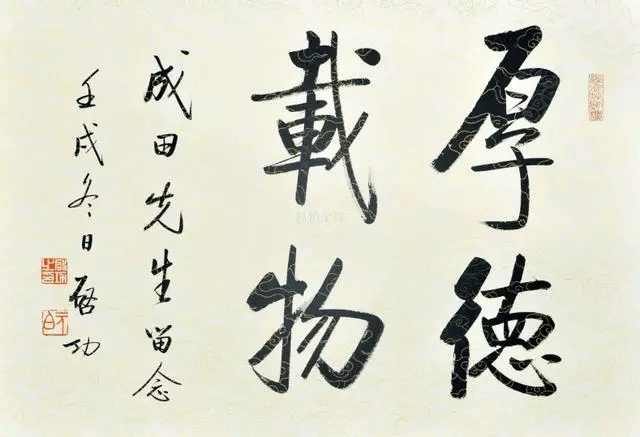 厚德
載物
成田先生留念
壬戌冬日 啓功